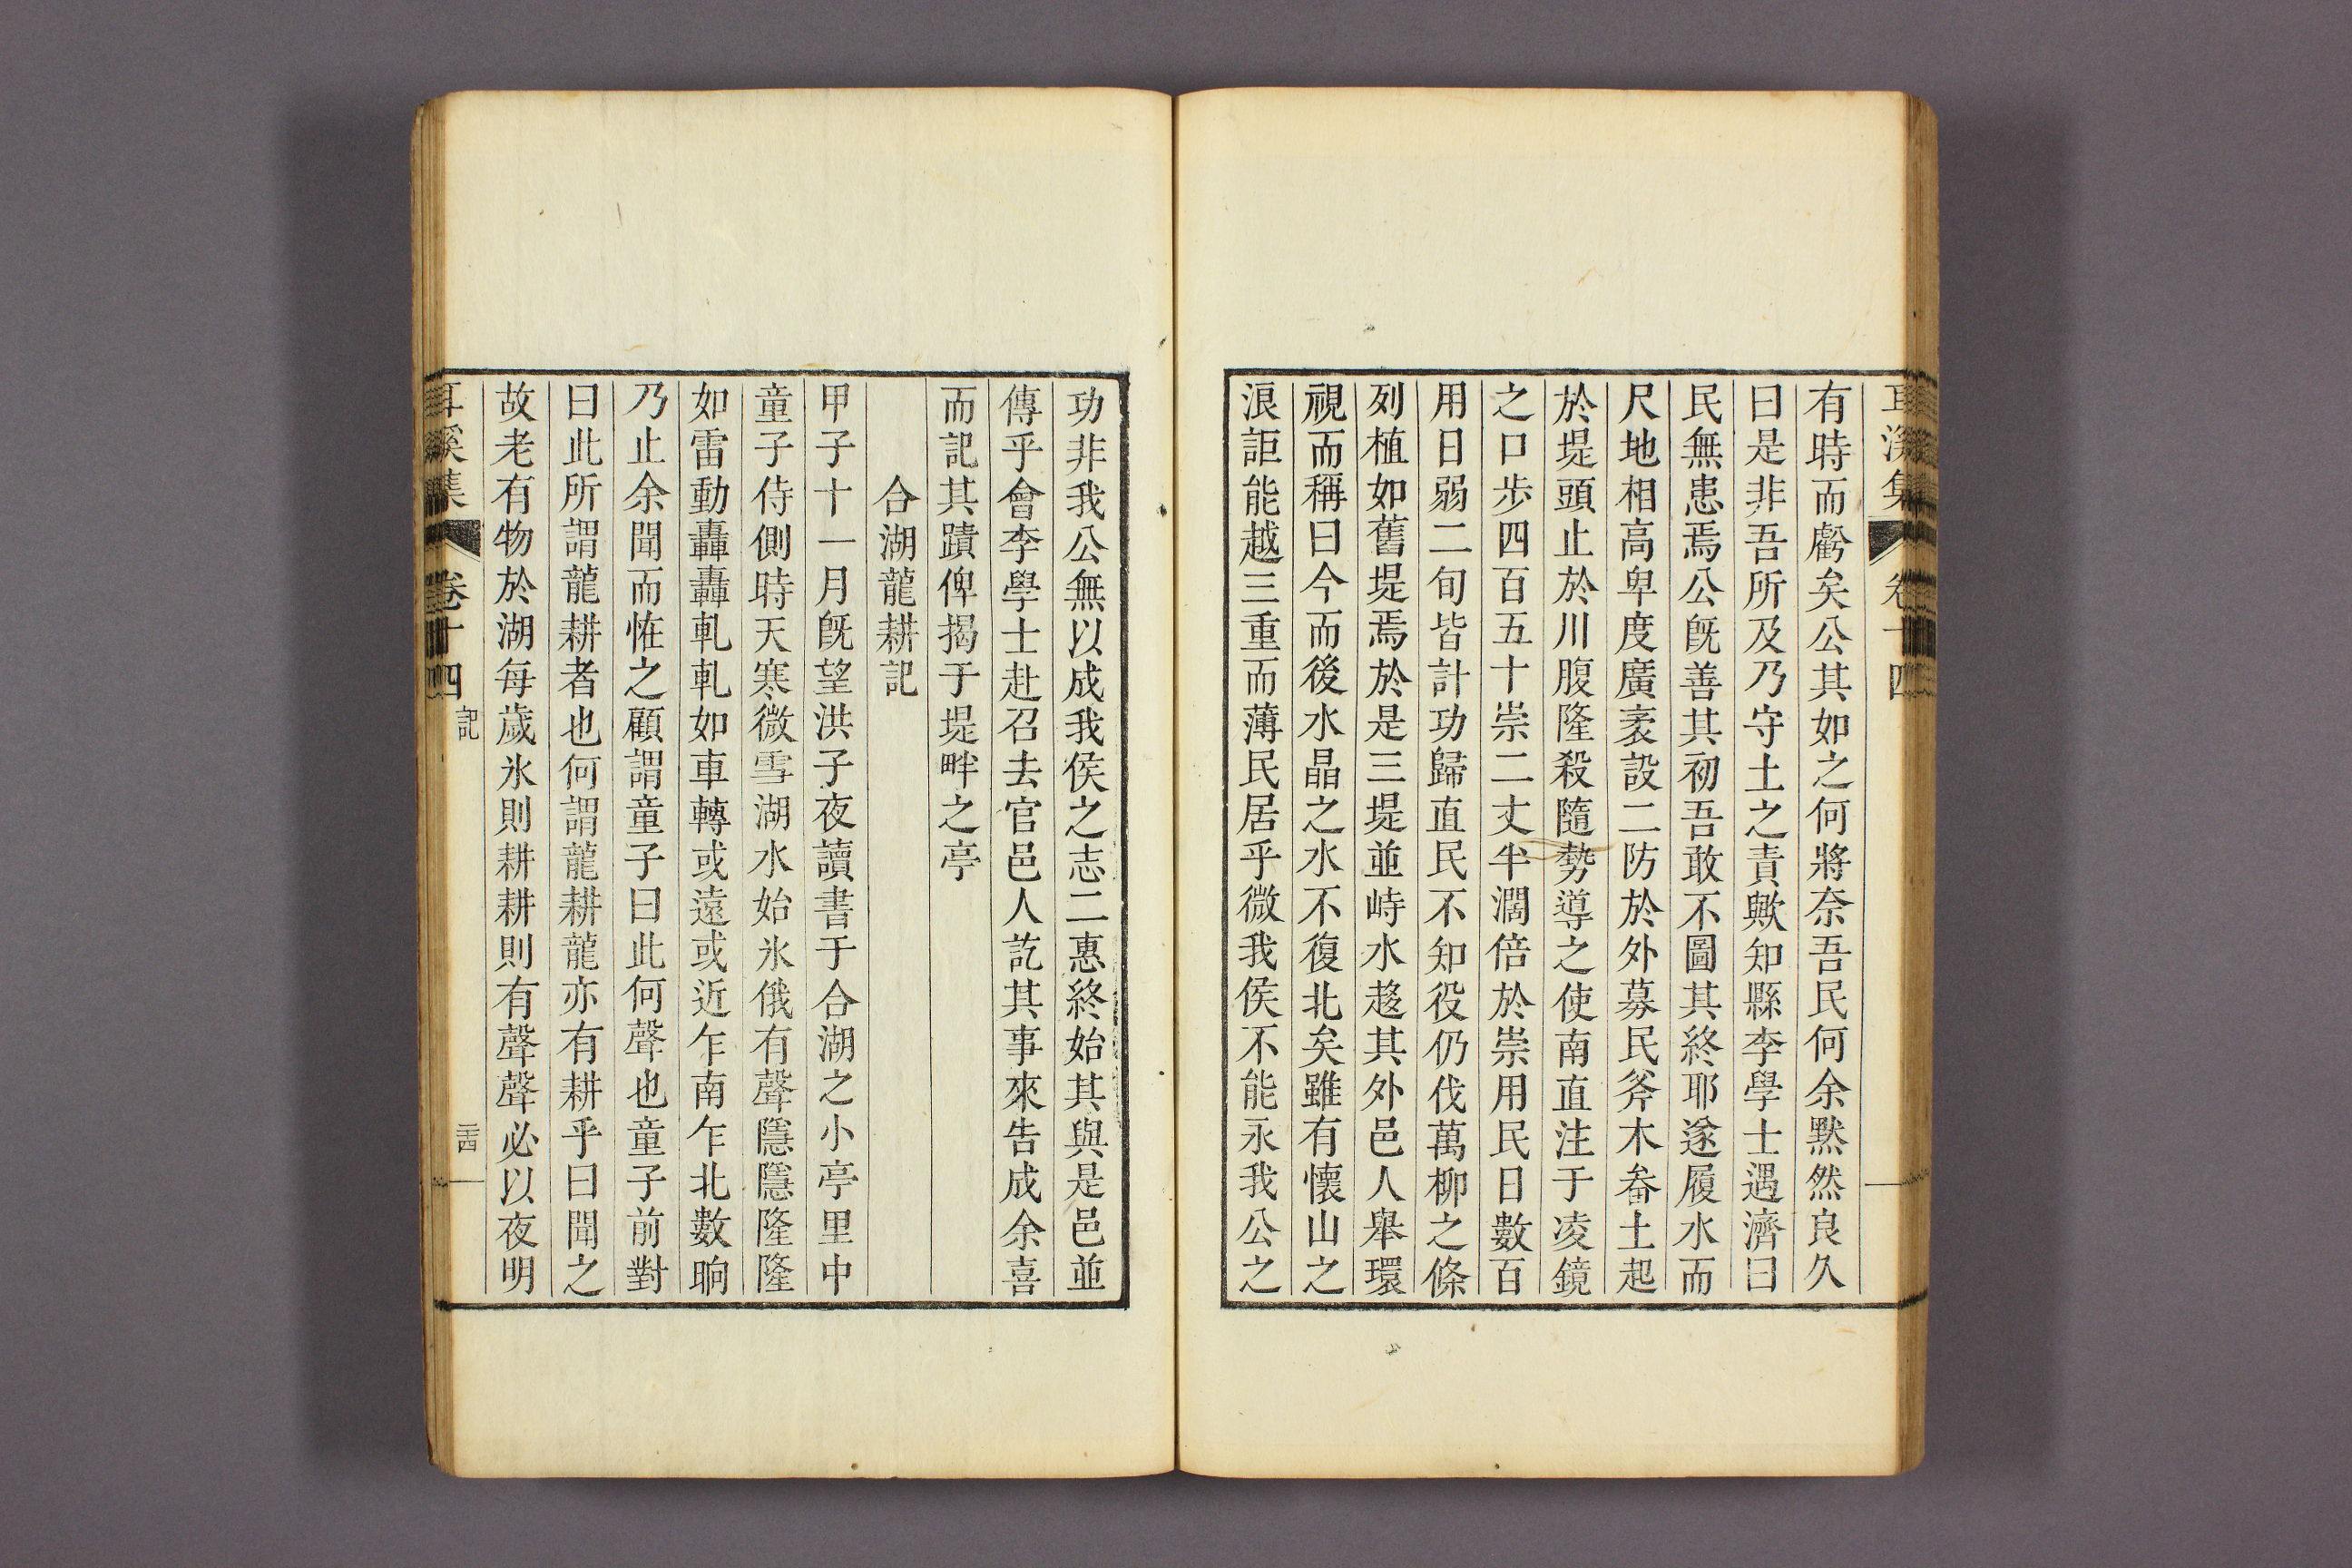 耳溪集 卷十四
有時而虧矣公其如之何將奈吾民何余黙然良久
曰是非吾所及乃守土之責歟知縣李學士遇濟曰
民無患焉公旣善其初吾敢不圖其終耶遂履水而
尺地相高卑度廣袤設二防於外募民斧木畚土起
於堤頭止於川腹隆殺隨勢導之使南直注于凌鏡
之口步四百五十崇二丈半濶倍於崇用民日數百
用日弱二旬皆計功歸直民不知役仍伐萬柳之條
列植如舊堤焉於是三堤並峙水趍其外邑人舉環
視而稱曰今而後水晶之水不復北矣雖有懷山之
浪詎能越三重而薄民居乎微我侯不能永我公之
功非我公無以成我侯之志二惠終始其與是邑並
傳乎會李學士赴召去官邑人訖其事來告成余喜
而記其蹟俾揭于堤畔之亭
合湖龍耕記
甲子十一月旣望洪子夜讀書于合湖之小亭里中
童子侍側時天寒微雪湖水始氷俄有聲隱隱隆隆
如雷動轟轟軋軋如車轉或遠或近乍南乍北數晌
乃止余聞而恠之顧謂童子曰此何聲也童子前對
曰此所謂龍耕者也何謂龍耕龍亦有耕乎曰聞之
故老有物於湖每歲氷則耕耕則有聲聲必以夜明
耳溪集 卷十四 記 二十四